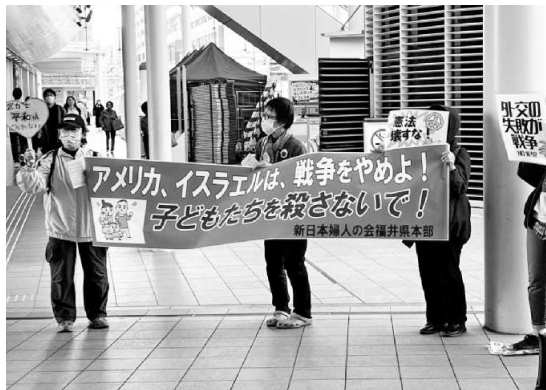 平和は
アメリカ、イスラエルは、戦争をやめよ！
子どもたちを殺さないで！
新日本婦人の会福井県本部
憲法
壊すな！
外交の
失敗が
戦争
NO WAR